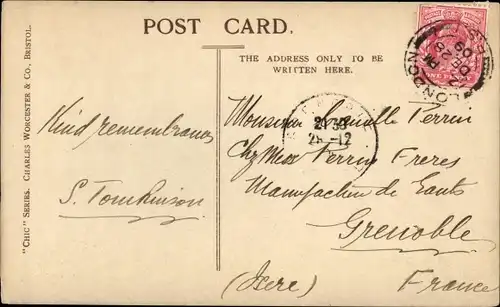 POST CARD.
THE ADDRESS ONLY TO BE
WRITTEN HERE.
"CHIC" SERIES. CHARLES WORCESTER & CO., BRISTOL.
LONDON
Kind remembrances
S. Tomkinson
21 35
25-12
Monsieur Camille Perrin
Chez Mess Perrin Freres
Manufacture de Gants
Grenoble
(Isere) France